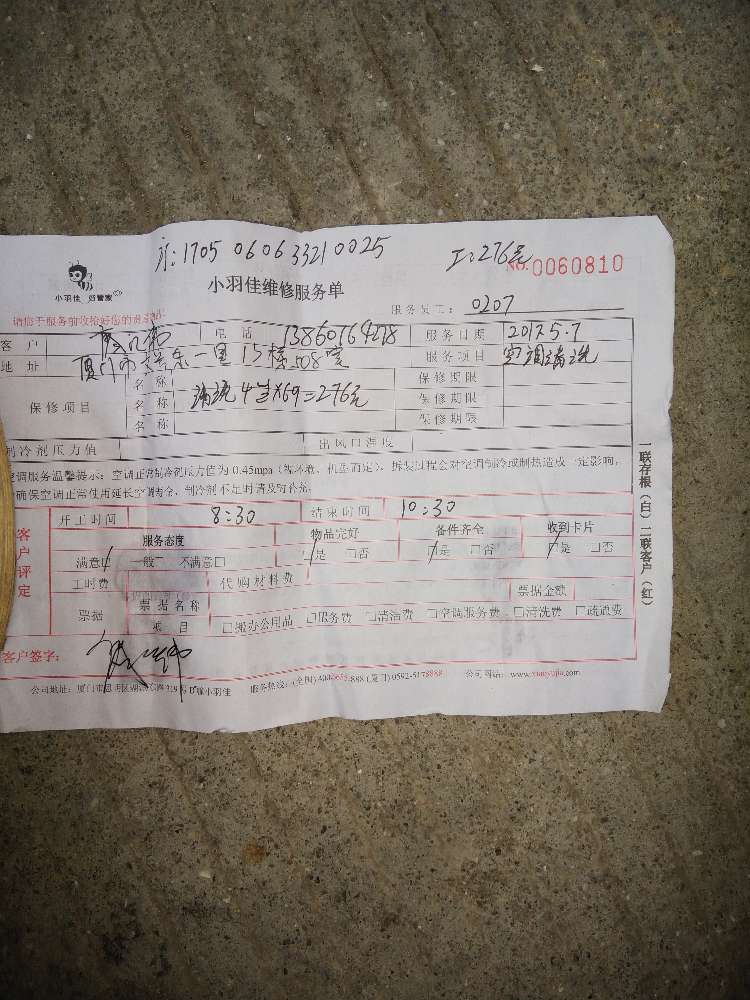 小羽佳 好管家
1705 0606 3321 0025
工:276元
No.0060810
小羽佳维修服务单
服务员工: 0207
客 户
电 话 13860164278 服务日期 2017.5.7
地 址 厦门市 一里15栋508室 服务项目 空调清洗
保修项目
名 称 清洗4台×69=276元 保修期限
名 称 保修期限
名 称 保修期限
制冷剂压力值 出风口温度
空调服务温馨提示:空调正常制冷剂压力值为0.45mpa(
),拆装过程会对空调制冷或制热造成一定影响,
确保空调正常使用延长空调寿命,制冷剂不足时请及时补充。
客户评定
开工时间 8:30 结束时间 10:30
服务态度 物品完好 备件齐全 收到卡片
满意 一般 不满意□ 是 □否 是 □否 是 □否
工时费 代购材料费
票据 票据名称 票据金额
项 目 □搬办公用品 □服务费 □清洁费 □空调服务费 □清洗费 □疏通费
客户签字:
公司地址:厦门市思明区 小羽佳 服务热线: (厦门)0592-5178888 公司网站:www.xiaoyujia.com
一联存根(白)二联客户(红)